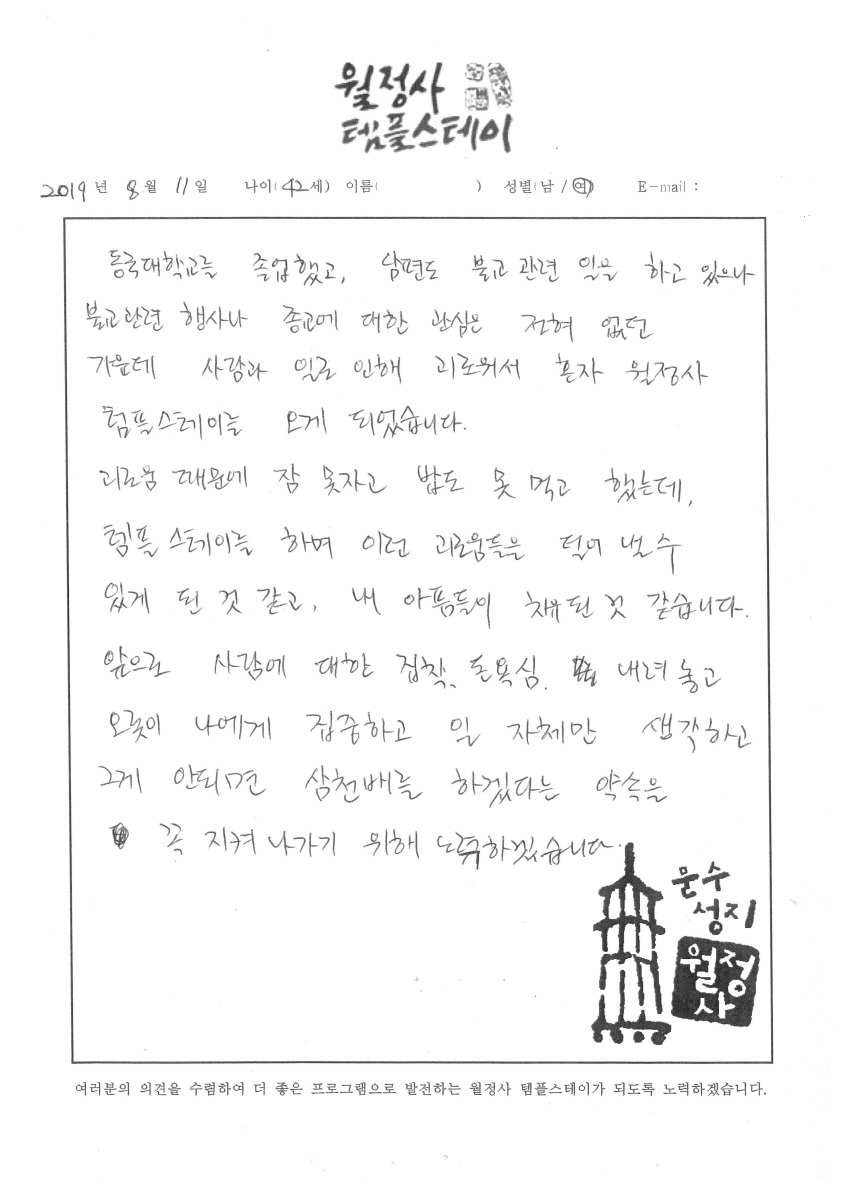 월정사
템플스테이
2019년 8월 11일 나이(42세) 이름( ) 성별(남 / 여) E-mail :
동국대학교를 졸업했고, 남편도 불교 관련 일을 하고 있으나
불교관련 행사나 종교에 대한 관심은 전혀 없던
가운데 사람과 일로 인해 괴로워서 혼자 월정사
템플스테이를 오게 되었습니다.
괴로움 때문에 잠 못자고 밥도 못 먹고 했는데,
템플스테이를 하며 이런 괴로움들을 덜어 낼 수
있게 된 것 같고, 내 아픔들이 치유된 것 같습니다.
앞으로 사람에 대한 집착, 돈욕심, 내려놓고
오롯이 나에게 집중하고 일 자체만 생각하고
그게 안되면 삼천배를 하겠다는 약속을
꼭 지켜 나가기 위해 노력하겠습니다.
문수
성지
월정
사
여러분의 의견을 수렴하여 더 좋은 프로그램으로 발전하는 월정사 템플스테이가 되도록 노력하겠습니다.